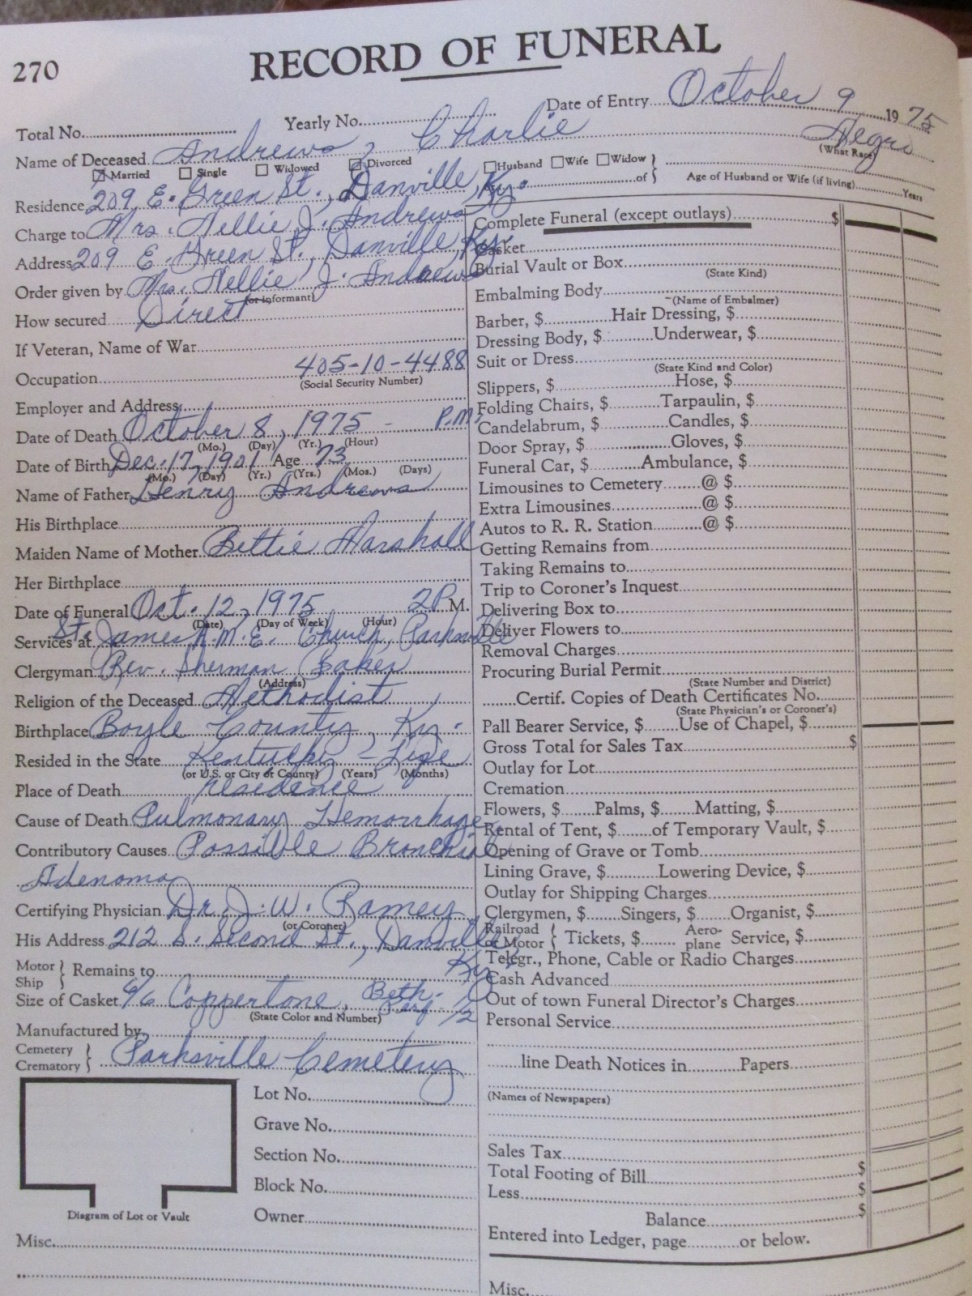 270
RECORD OF FUNERAL
Total No.
Yearly No.
Date of Entry October 9 1975
Name of Deceased Andrews, Charlie
Negro
(What Race)
Married Single Widowed Divorced
Husband Wife Widow of
Age of Husband or Wife (if living) Years
Residence 209 E. Green St., Danville, Ky.
Charge to Mrs. Nellie J. Andrews
Address 209 E. Green St., Danville Ky.
Order given by Mrs. Nellie J. Andrews
(or informant)
How secured Direct
If Veteran, Name of War
Occupation 405-10-4488
(Social Security Number)
Employer and Address
Date of Death October 8, 1975 - P.M.
(Mo.) (Day) (Yr.) (Hour)
Date of Birth Dec. 17, 1901 Age 73
(Mo.) (Day) (Yr.) (Yrs.) (Mos.) (Days)
Name of Father Henry Andrews
His Birthplace
Maiden Name of Mother Bettie Marshall
Her Birthplace
Date of Funeral Oct. 12, 1975 2 P.M.
(Date) (Day of Week) (Hour)
Services at St. James A.M.E. Church, Parksville
Clergyman Rev. Sherman Bakes
(Address)
Religion of the Deceased Methodist
Birthplace Boyle County, Ky.
Resided in the State Kentucky - Life
(or U.S. or City or County) (Years) (Months)
Place of Death residence
Cause of Death Pulmonary Hemorrhage
Contributory Causes Possible Bronchial
Adenoma
Certifying Physician Dr. J. W. Ramey
(or Coroner)
His Address 212 S. Second St., Danville
Ky.
Motor
Ship
Remains to
Size of Casket 6/6 Coppertone, Beth-
(State Color and Number)
Manufactured by
Cemetery
Crematory
Parksville Cemetery
Lot No.
Grave No.
Section No.
Block No.
Owner
Diagram of Lot or Vault
Misc.
Complete Funeral (except outlays) $
Casket
Burial Vault or Box
(State Kind)
Embalming Body
(Name of Embalmer)
Barber, $ Hair Dressing, $
Dressing Body, $ Underwear, $
Suit or Dress
(State Kind and Color)
Slippers, $ Hose, $
Folding Chairs, $ Tarpaulin, $
Candelabrum, $ Candles, $
Door Spray, $ Gloves, $
Funeral Car, $ Ambulance, $
Limousines to Cemetery @ $
Extra Limousines @ $
Autos to R. R. Station @ $
Getting Remains from
Taking Remains to
Trip to Coroner's Inquest
Delivering Box to
Deliver Flowers to
Removal Charges
Procuring Burial Permit
(State Number and District)
Certif. Copies of Death Certificates No.
(State Physician's or Coroner's)
Pall Bearer Service, $ Use of Chapel, $
Gross Total for Sales Tax $
Outlay for Lot
Cremation
Flowers, $ Palms, $ Matting, $
Rental of Tent, $ of Temporary Vault, $
Opening of Grave or Tomb
Lining Grave, $ Lowering Device, $
Outlay for Shipping Charges
Clergymen, $ Singers, $ Organist, $
Railroad or Motor Tickets, $ Aeroplane Service, $
Telegr., Phone, Cable or Radio Charges
Cash Advanced
Out of town Funeral Director's Charges
Personal Service
line Death Notices in Papers
(Names of Newspapers)
Sales Tax
Total Footing of Bill $
Less $
Balance $
Entered into Ledger, page or below.
Misc.